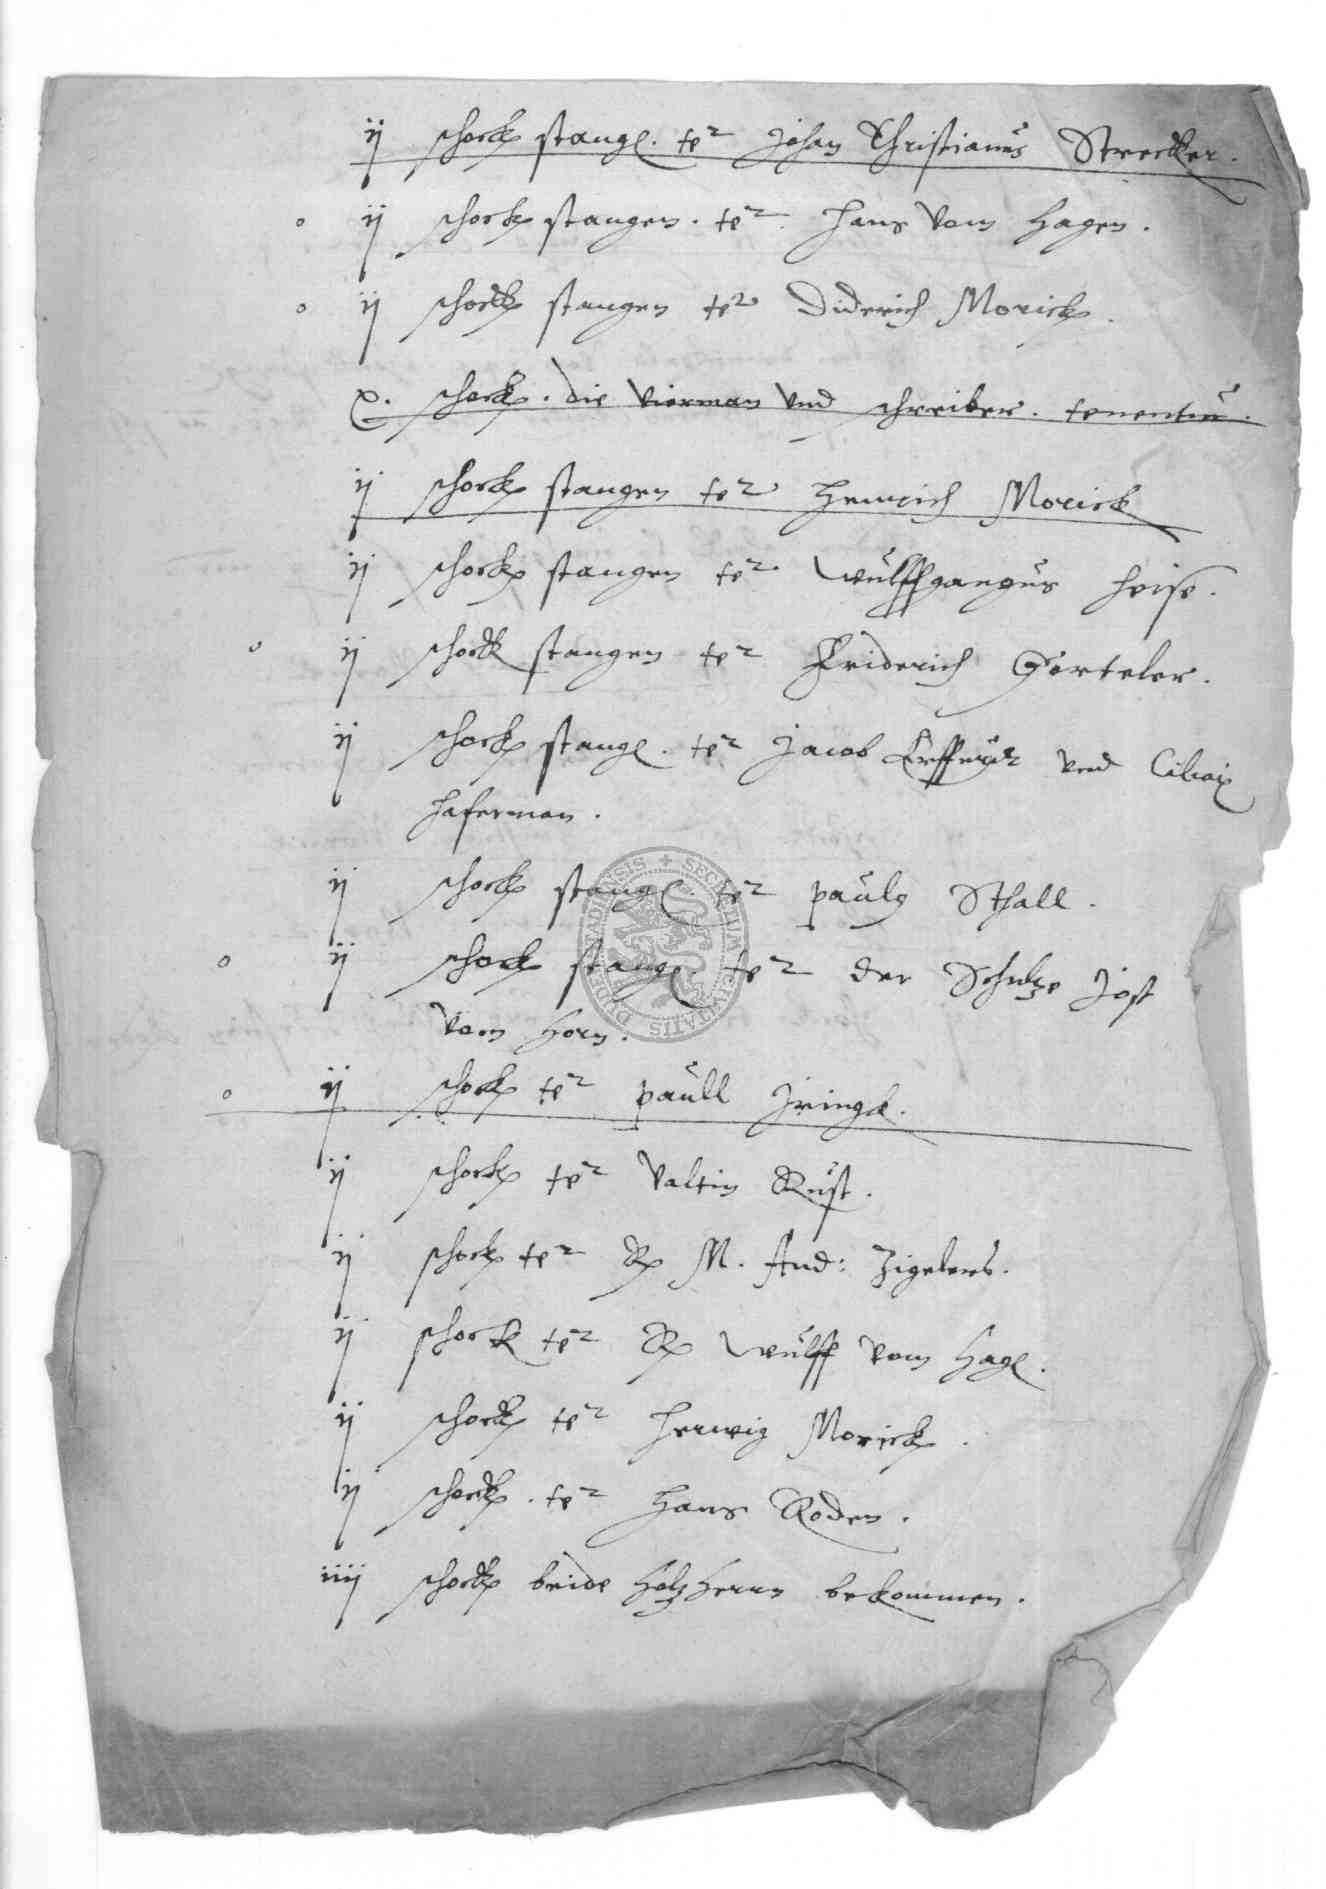 ij schock stang. ter Johan Christianus Strecker.
o ij schock stangen. ter Hans vom Hagen.
o ij schock stangen ter Diderich Morick.
x. schock. die vierman vnd schreiber. tenentur.
ij schock stangen ter Heinrich Morick
ij schock stangen ter Wulffgangus Heise.
o ij schock stangen ter Friderich Gorteler.
ij schock stang. ter Jacob vnd
Haferman.
ij schock stang. ter Paulus Sthall.
o ij schock stang. ter der Schultze Jost
vom Horn.
o ij schock ter Paull Iringk.
ij schock ter Valtin Rust.
ij schock ter R M. And: Zigelers.
ij schock ter R Wulff vom Hag.
ij schock ter Herwig Morick.
ij schock. ter Hans Roden.
iiij schock beide Holtzherrn bekommen.
SECRETUM CIVITATIS DUDERSTADIENSIS